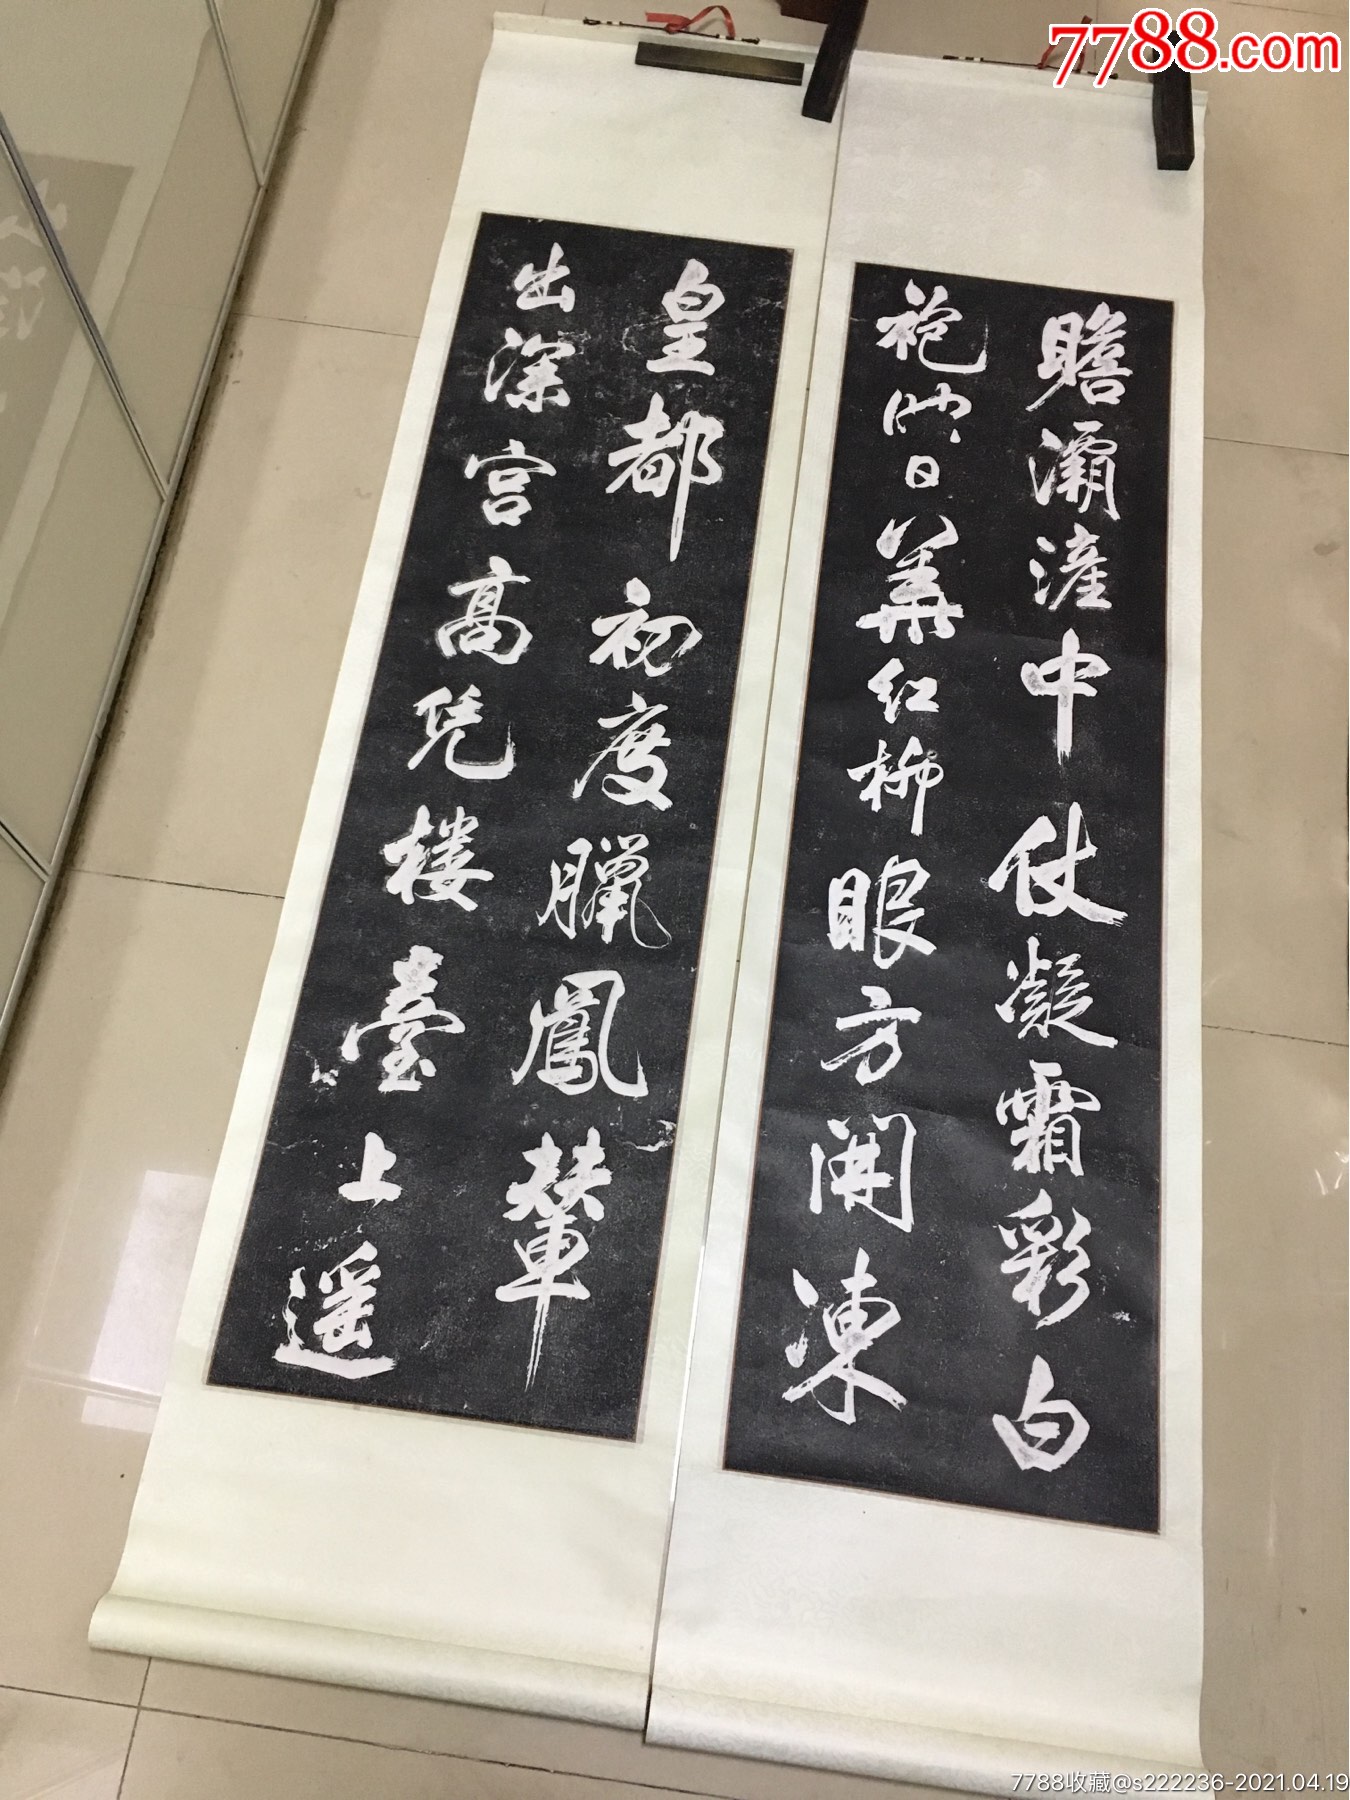 7788.com
皇都初度臘鳳輦
出深宮高凭楼臺上遥
瞻灞滻中仗凝霜彩白
袍映日華紅柳眼方開凍
7788收藏@s222236-2021.04.19